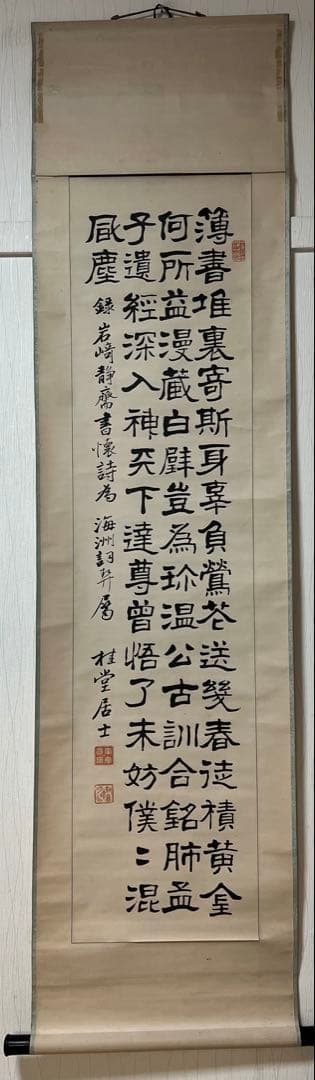 簿書堆裏寄斯身辜負鶯花送幾春徒積黃金
何所益漫藏白璧豈為珍溫公古訓合銘肺孟
子遺經深入神天下達尊曾悟了未妨僕〻混
凮塵 錄岩崎静齋書懷詩為 海洲詞契屬 桂堂居士